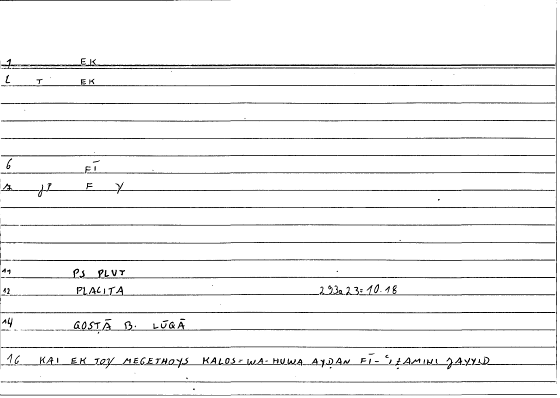 1 EK
L T EK
6 FĪ
A jP F Y
11 PS PLUT
12 PLACITA 293a23=10.18
14 QOSṬĀ B. LŪQĀ
16 KAI EK TOY MEGETHOYS KALOS=WA-HUWA AYḌAN FĪ-ʿIẒAMIHI JAYYID